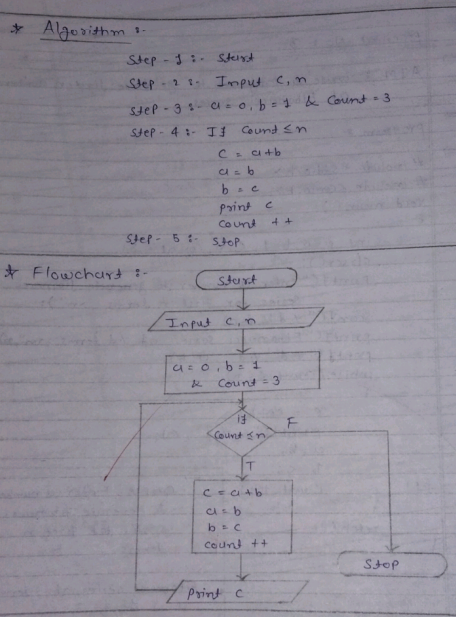 * Algorithm :-
Step - 1 :- Start
Step - 2 :- Input c, n
Step - 3 :- a = 0, b = 1 & Count = 3
Step - 4 :- If Count ≤ n
c = a+b
a = b
b = c
print c
count ++
Step - 5 :- Stop
* Flowchart :-
Start
Input c, n
a = 0, b = 1
& Count = 3
if
Count ≤ n
F
T
c = a+b
a = b
b = c
count ++
Stop
Print c